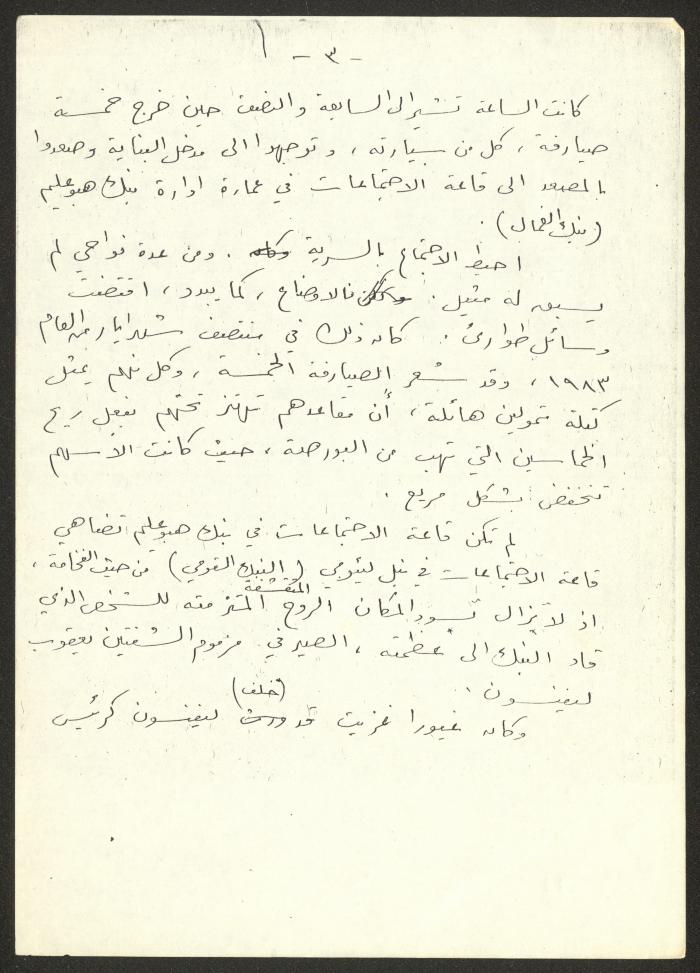 - ٣ -
كانت الساعة تشير الى السابعة والنصف حين خرج خمسة
صيارفة ، كل من سيارته ، وتوجهوا الى مدخل البناية وصعدوا
بالمصعد الى قاعة الاجتماعات في عمارة ادارة بنك هبوعليم
(بنك العمال) .
احيط الاجتماع بالسرية وكله . ومن عدة نواحي لم
يسبق له مثيل . فالاوضاع ، كما يبدو ، اقتضت
وسائل طوارئ . كان ذلك في منتصف شهر ايار من العام
١٩٨٣ ، وقد شعر الصيارفة الخمسة ، وكل منهم يمثل
كتلة تمولين هائلة ، أن مقاعدهم تهتز تحتهم بفعل ريح
الخماسين التي تهب من البورصة ، حيث كانت الأسهم
تنخفض بشكل مريع .
لم تكن قاعة الاجتماعات في بنك هبوعليم تضاهي
قاعة الاجتماعات في بنك ليئومي (البنك القومي) من حيث الفخامة ،
اذ لا يزال تسود المكان الروح المتقشفة المتزمته للشخص الذي
قاد البنك الى عظمته ، الصيرفي مزموم الشفتين يعقوب
ليفنسون .
وكان غيورا غزيت قد ورث (خلف) ليفنسون كرئيس